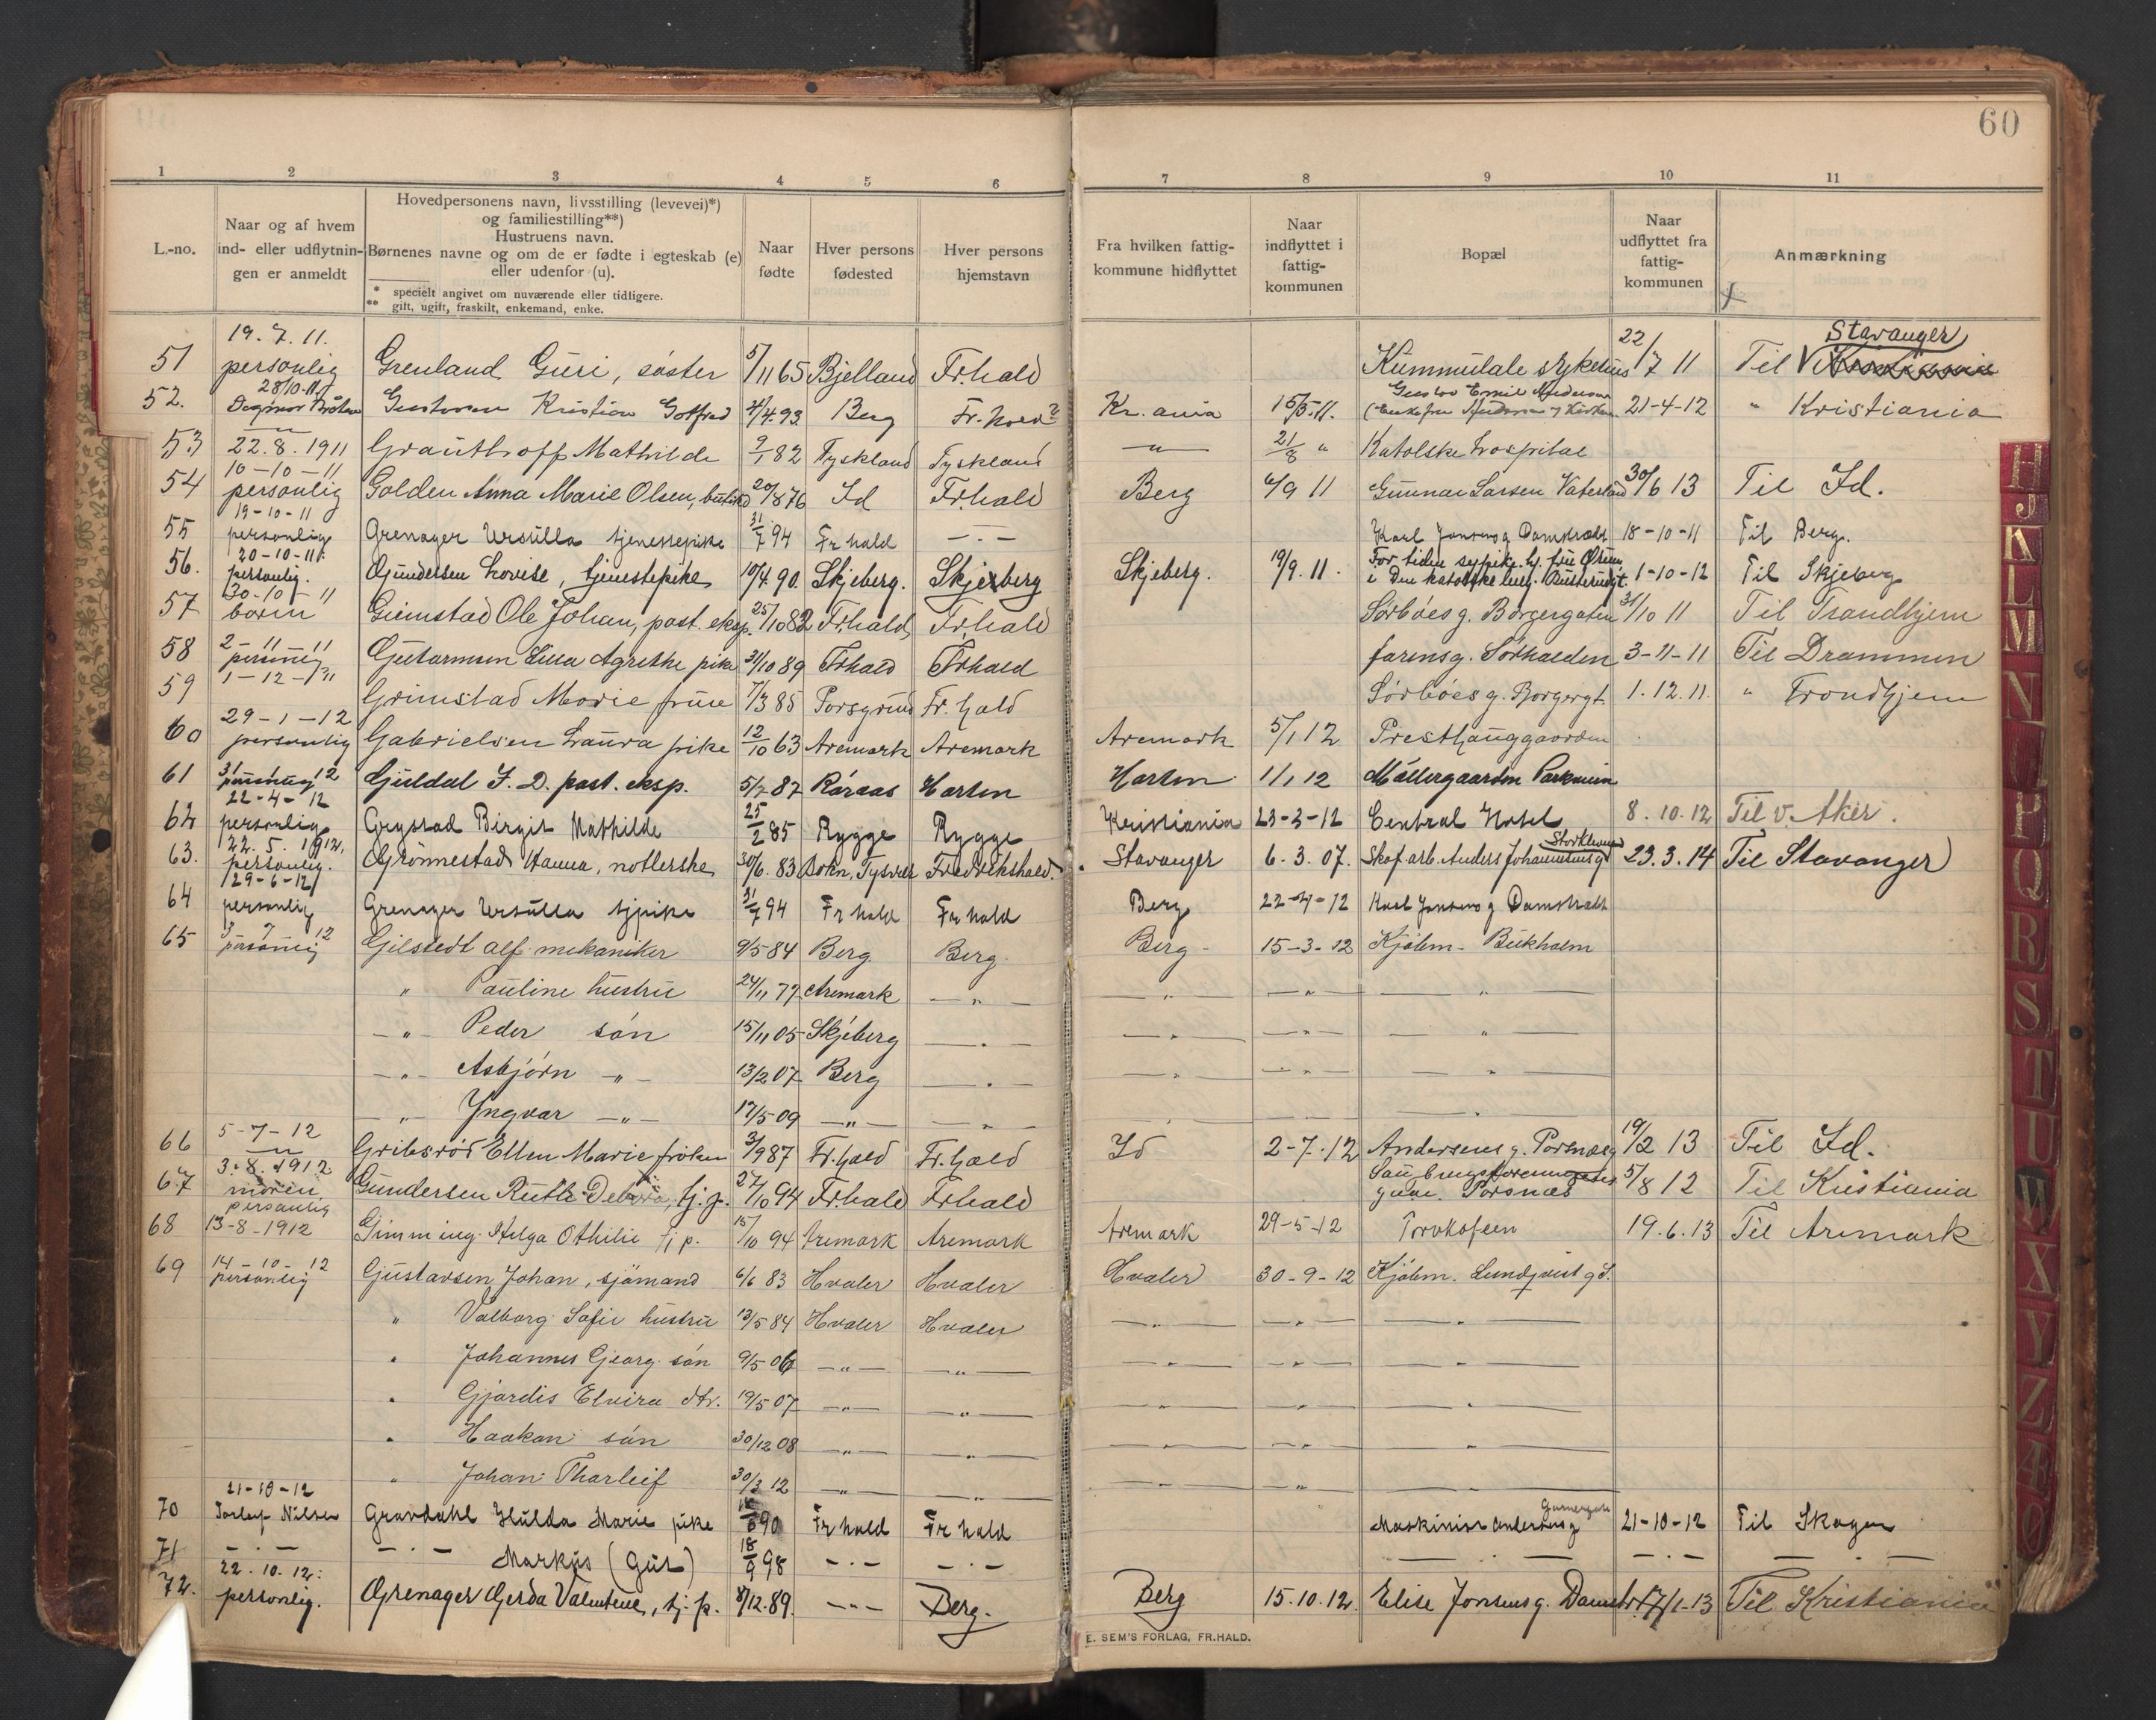 60
1 2 3 4 5 6 7 8 9 10 11
L.-no.
Naar og af hvem
ind- eller udflytnin-
gen er anmeldt
Hovedpersonens navn, livsstilling (levevei)*)
og familiestilling**)
Hustruens navn.
Børnenes navne og om de er fødte i egteskab (e)
eller udenfor (u).
* specielt angivet om nuværende eller tidligere.
** gift, ugift, fraskilt, enkemand, enke.
Naar
fødte
Hver persons
fødested
Hver persons
hjemstavn
Fra hvilken fattig-
kommune hidflyttet
Naar
indflyttet i
fattig-
kommunen
Bopæl
Naar
udflyttet fra
fattig-
kommunen
Anmærkning
19.7.11. Stavanger
51 personlig Grenland Guri, søster 5/11 65 Bjelland Fr.hald 22/7 11 Til
28/10-11
52. Kristian Gotfred 4.93 Berg Kr.ania 15/5.11. 21-4-12 " Kristiania
53 22.8.1911 Grauthoff Mathilde 9/1 82 Tyskland Tyskland — " — 21/8 " Katolske hospital
10-10-11
54 personlig Golden Anna Marie Olsen, 20/8 76 Id Fr.hald Berg 6/9 11 Gunnar Larsen Vaterland 30/6 13 Til Id.
19-10-11
55 personlig Grenager Ursulla tjenestepike 31/7 94 Fr hald — " — Karl Jonsens g Damstrædt 18-10-11 Til Berg.
20-10-11. For tiden
56. personlig. Gundersen Lovise, tjenestepike 10/4.90. Skjeberg. Skjeberg Skjeberg. 19/9.11. i Den katolske 1-10-12 Til Skjeberg
30-10-11
57 Grimstad Ole Johan, post.eksp. 25/10 82 Fr.hald Fr.hald Sørbøes g. Borgergaten 31/10 11 Til Trondhjem
2-11-11
58 personlig Agrethe pike 31/10 89 Fr.hald Fr.hald Sørhalden 3-11-11 Til Drammen
1-12-11
59 Grimstad Marie frue 7/3 85 Porsgrund Fr.hald Sørbøes g. Borgergt. 1.12.11. " Trondhjem
29-1-12
60 personlig Gabrielsen Laura pike 12/10 63 Aremark Aremark Aremark 5/1 12 Presthauggaarden
31 1 12
61 personlig Guldal J. D. post.eksp. 5/7 87 Røraas Horten Horten 1/1 12 Møllergaarden Parkveien
22-4-12
62 personlig Grystad Birgit Mathilde 25/2 85 Rygge Rygge Kristiania 23-2-12 Central Hotel 8.10.12 Til v. Aker.
22.5.1912.
63. personlig. Grønnestad Hanna, notlerske 30/6.83 Bokn, Tysvær Fredrikshald. Stavanger 6.3.07. Skof.arb. Anders Johannesens g. 23.3.14 Til Stavanger
29-6-12
64 personlig Grenager Ursulla tjpike 31/7 94 Fr hald Fr hald Berg 22-4-12 Karl Jonsens g Damstrædt
3 7 12
65 personlig Gilstedt Alf mekaniker 9/5 84 Berg Berg Berg 15-3-12 Kjøbm. Bukholm
" Pauline hustru 24/11 77 Aremark — " — — " — — " — — " —
— " — Peder søn 15/11 05 Skjeberg — " — — " — — " — "
— " — Asbjørn — " — 13/2 07 Berg — " — — " — — " — — " —
— " — Yngvar — " — 17/5 09 — " — — " — — " — — " — — " —
5-7-12
66 — " — Gribsrød Ellen Marie frøken 3/9 87 Fr.hald Fr.hald Id 2-7-12 Andersens g. Porsnæs 19/2 13 Til Id.
3.8.1912
67 moren Gundersen Ruth Debora, tj.p. 27/10 94 Fr.hald Fr.hald Porsnæs 5/8 12 Til Kristiania
personlig
68 13-8-1912 Gimming Helga Othilie tj p. 15/10 94 Aremark Aremark Aremark 29-5-12 Torvkafeen 19.6.13 Til Aremark
14-10-12
69 personlig Gjustavsen Johan, sjømand 6/6 83 Hvaler Hvaler Hvaler 30-9-12 Kjøbm. Lundqvist g
" Valborg Sofie hustru 13/5 84 Hvaler Hvaler — " — — " — — " —
" Johannes Gjeorg søn 9/5 06 — " — — " — — " — — " — — " —
" Gjørdis Elvira dtr. 19/5 07 — " — — " — — " — — " — — " —
" Haakon søn 30/12 08 — " — — " — — " — — " — — " —
" Johan Thorleif 30/3 12 — " — — " — — " — — " —
21-10-12
70 Nilsen Gravdahl Hulda Marie pike 90 Fr hald Fr hald Maskinist Andersens g 21-10-12 Til Skagen
71 — " — — " — Markus (Gut) 18/9 98 — " — — " — — " — — " — — " —
22.10.12.
72. personlig. Grenager Gerda Valentene, tj.p. 8/12.89. — " — Berg. Berg 15.10.12. Elise Jonsens g. Damstr. 17/1-13 Til Kristiania
E. SEM'S FORLAG, FR.HALD.
H J K L M N O P Q R S T U W X Y Z Æ Ø